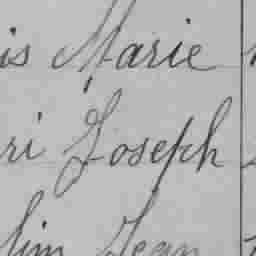 is Marie
ri Joseph
lim Jean